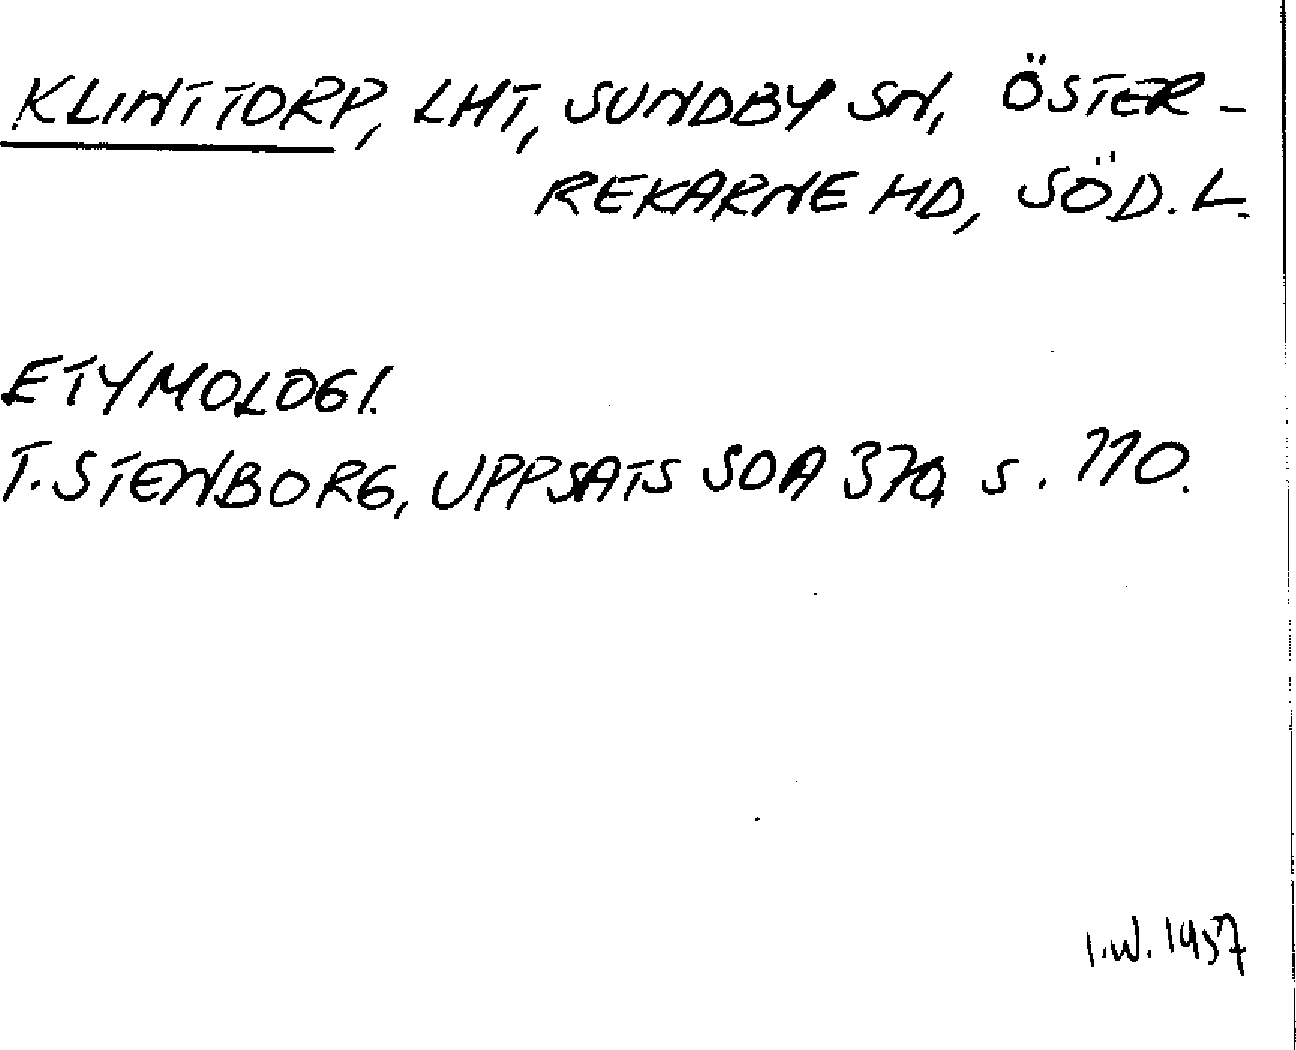 KLINTTORP, LHT, SUNDBY SN, ÖSTER-
REKARNE HD, SÖD. L.
ETYMOLOGI.
T. STENBORG, UPPSATS SOA 370, s. 110.
I.W. 1957